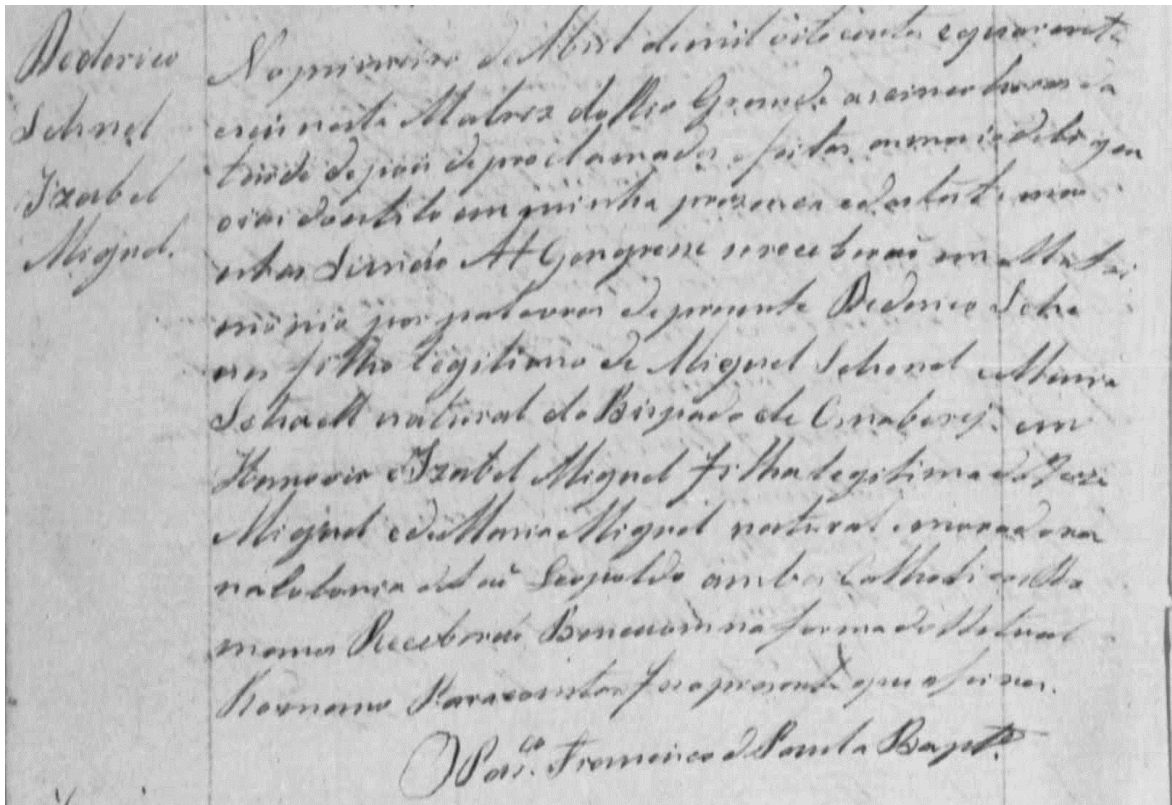 Dederico
Schnel
Izabel
Miguel.
No primeiro de Abril de mil oito centos e quarenta
e seis nesta Matriz do Rio Grande as cinco horas da
tarde depois de proclamados e feitas as mais deligen
cias do estilo em minha prezença e das testemu
nhas se receberaõ em Matri
monio por palavras de prezente Dederico Sch
filho legitimo de Miguel Schnel e Maria
natural do Bispado de em
Hanover e Izabel Miguel filha legitima de
Miguel e de Maria Miguel natural e moradora
na Colonia de Saõ Leopoldo ambos Catholicos
manos Receberaõ Bençaom na forma do Ritual
Romano Para constar fis o prezente que asinei.
O Par.co Francisco de Paula Bapt.